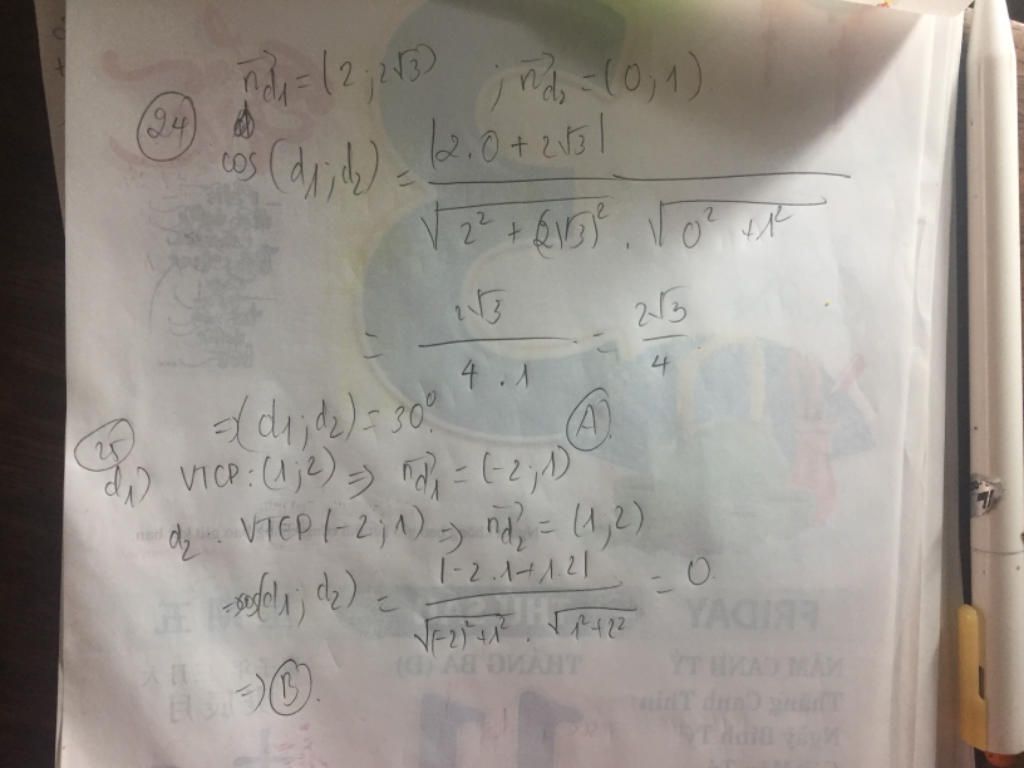 n⃗d1 = (2 ; 2√3) ; n⃗d2 = (0 ; 1)
24
cos (d1 ; d2) = |2.0 + 2√3| / √(2² + (2√3)²) . √(0² + 1²)
= 2√3 / 4 . 1 = 2√3 / 4
=> (d1 ; d2) = 30°. A.
25
d1) VTCP : (1 ; 2) => n⃗d1 = (-2 ; 1)
d2 VTCP (-2 ; 1) => n⃗d2 = (1 ; 2)
=> cos(d1 ; d2) = |-2.1 + 1.2| / √((-2)² + 1²) . √(1² + 2²) = 0.
=> B.
FRIDAY
五
NĂM CANH TÝ
THÁNG BA (D)
Tháng Canh Thìn
月
Ngày Bính Tý